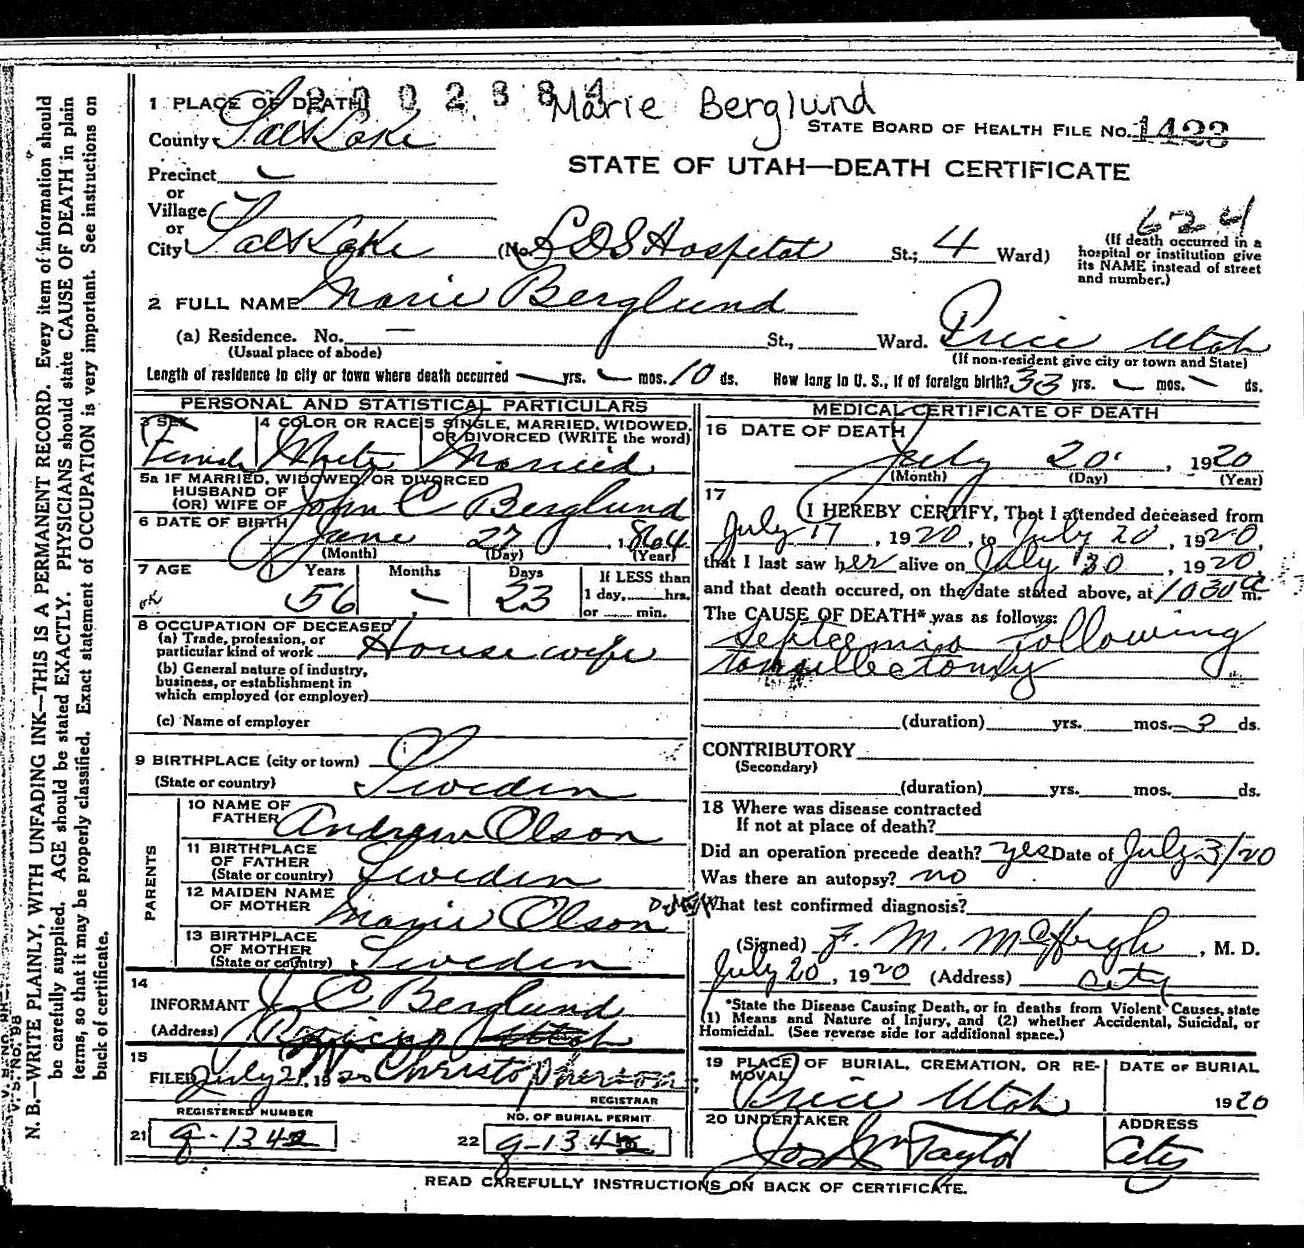 2002384 Marie Berglund
1 PLACE OF DEATH
STATE BOARD OF HEALTH FILE No. 1423
County Salt Lake
STATE OF UTAH—DEATH CERTIFICATE
Precinct
or
Village
or
City Salt Lake (No. LDS Hospital St.; 4 Ward)
624
(If death occurred in a
hospital or institution give
its NAME instead of street
and number.)
2 FULL NAME Marie Berglund
(a) Residence. No. — St., Ward. Price Utah
(Usual place of abode) (If non-resident give city or town and State)
Length of residence in city or town where death occurred — yrs. — mos. 10 ds. How long in U. S., if of foreign birth? 33 yrs. — mos. — ds.
PERSONAL AND STATISTICAL PARTICULARS
3 SEX 4 COLOR OR RACE 5 SINGLE, MARRIED, WIDOWED,
OR DIVORCED (WRITE the word)
Female White Married
5a IF MARRIED, WIDOWED, OR DIVORCED
HUSBAND OF
(OR) WIFE OF John C Berglund
6 DATE OF BIRTH June 27, 1864
(Month) (Day) (Year)
7 AGE Years Months Days If LESS than
1 day, hrs.
ok 56 — 23 or min.
8 OCCUPATION OF DECEASED
(a) Trade, profession, or
particular kind of work House wife
(b) General nature of industry,
business, or establishment in
which employed (or employer)
(c) Name of employer
9 BIRTHPLACE (city or town)
(State or country) Sweden
PARENTS
10 NAME OF
FATHER Andrew Olson
11 BIRTHPLACE
OF FATHER
(State or country) Sweden
12 MAIDEN NAME
OF MOTHER Marie Olson
13 BIRTHPLACE
OF MOTHER
(State or country) Sweden
14
INFORMANT J C Berglund
(Address) Utah
15
FILED July 21, 1920 Christopherson
REGISTRAR
REGISTERED NUMBER NO. OF BURIAL PERMIT
21 g-1342 22 g-1342
MEDICAL CERTIFICATE OF DEATH
16 DATE OF DEATH
July 20, 1920
(Month) (Day) (Year)
17
I HEREBY CERTIFY, That I attended deceased from
July 17, 1920, to July 20, 1920,
that I last saw her alive on July 20, 1920,
and that death occured, on the date stated above, at 1030 a m.
The CAUSE OF DEATH* was as follows:
Septicemia following
tonsillectomy
(duration) yrs. mos. 3 ds.
CONTRIBUTORY
(Secondary)
(duration) yrs. mos. ds.
18 Where was disease contracted
If not at place of death?
Did an operation precede death? yes Date of July 3/20
Was there an autopsy? no
What test confirmed diagnosis?
(Signed) F. M. McHugh, M. D.
July 20, 1920 (Address) City
*State the Disease Causing Death, or in deaths from Violent Causes, state
(1) Means and Nature of Injury, and (2) whether Accidental, Suicidal, or
Homicidal. (See reverse side for additional space.)
19 PLACE OF BURIAL, CREMATION, OR RE-
MOVAL
Price Utah
DATE OF BURIAL
1920
20 UNDERTAKER
Jos Wm Taylor
ADDRESS
City
READ CAREFULLY INSTRUCTIONS ON BACK OF CERTIFICATE.
N. B.—WRITE PLAINLY, WITH UNFADING INK—THIS IS A PERMANENT RECORD. Every item of information should
be carefully supplied. AGE should be stated EXACTLY. PHYSICIANS should state CAUSE OF DEATH in plain
terms, so that it may be properly classified. Exact statement of OCCUPATION is very important. See instructions on
back of certificate.
V. S. No. 98